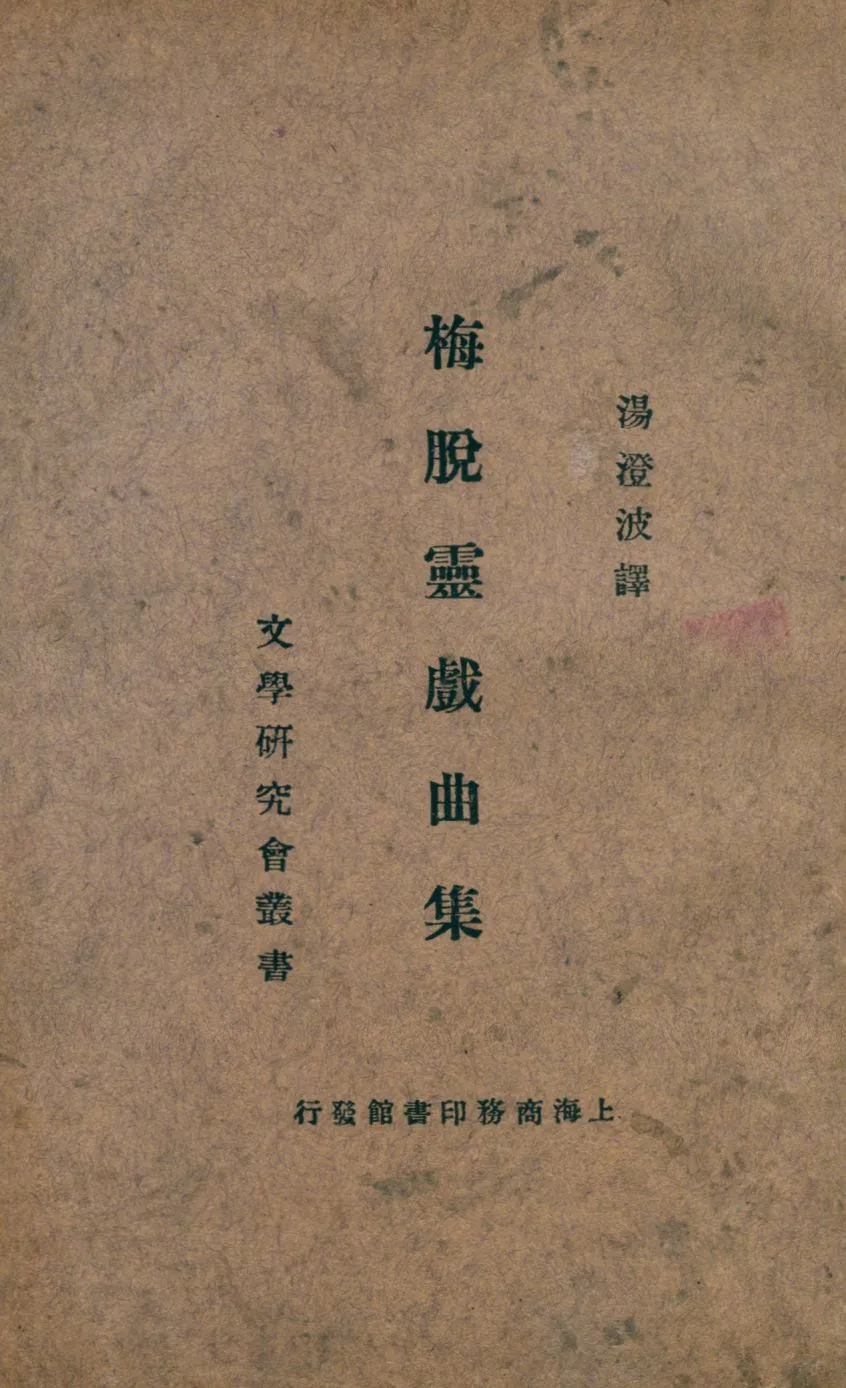 湯澄波譯
梅脫靈戲曲集
文學研究會叢書
上海商務印書館發行